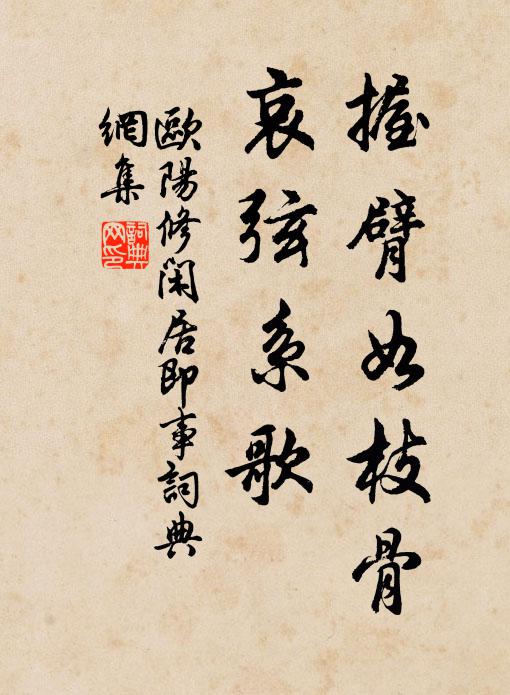 握臂如枝骨
哀弦系歌
歐陽修閑居即事詞典
網集
詞典
网印